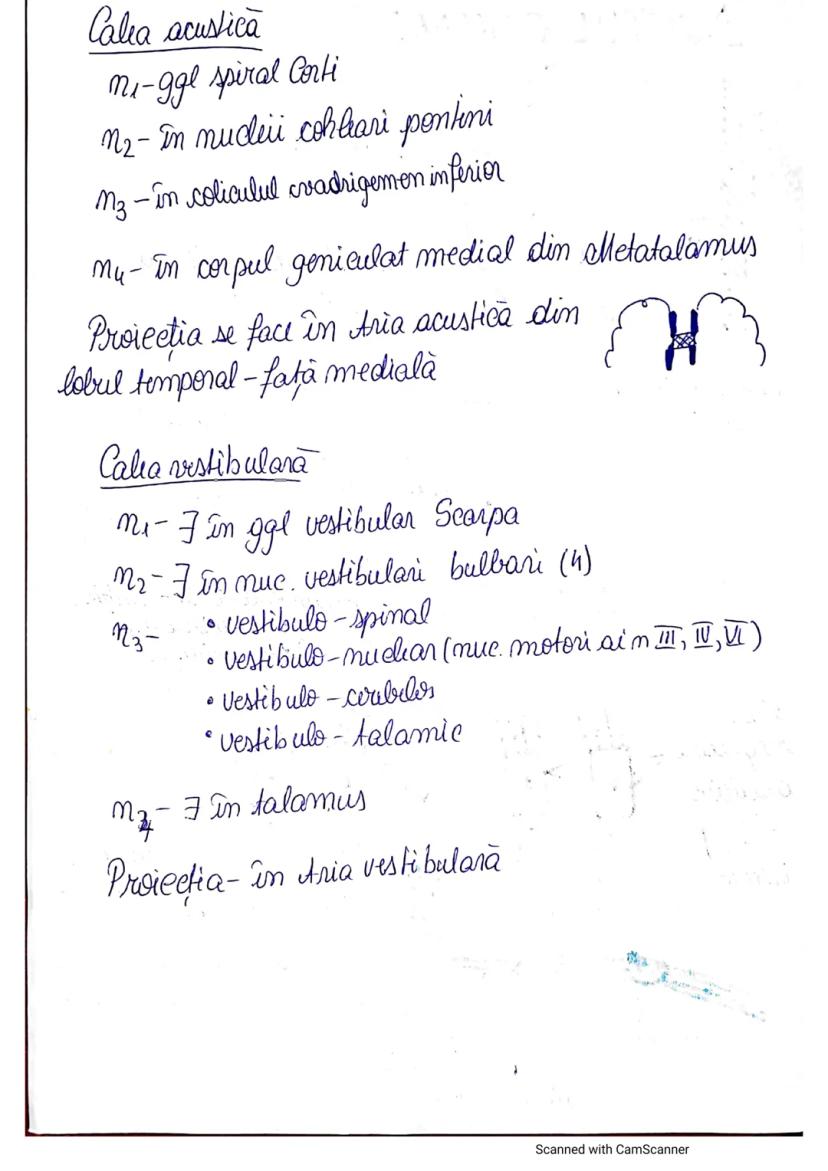 Calea acustică
n1 - ggl spiral Corti
n2 - în nucleii cohleari pontini
n3 - în coliculul cvadrigemen inferior
n4 - în corpul geniculat medial din Metatalamus
Proiecția se face în Aria acustică din
lobul temporal - față medială
Calea vestibulară
n1 - ∃ în ggl vestibular Scarpa
n2 - ∃ în nuc. vestibulari bulbari (4)
n3 - • vestibulo - spinal
• vestibulo - nuclear (nuc. motori ai n III, IV, VI)
• vestibulo - cerebelos
• vestibulo - talamic
n4 - ∃ în talamus
Proiecția - în Aria vestibulară
Scanned with CamScanner